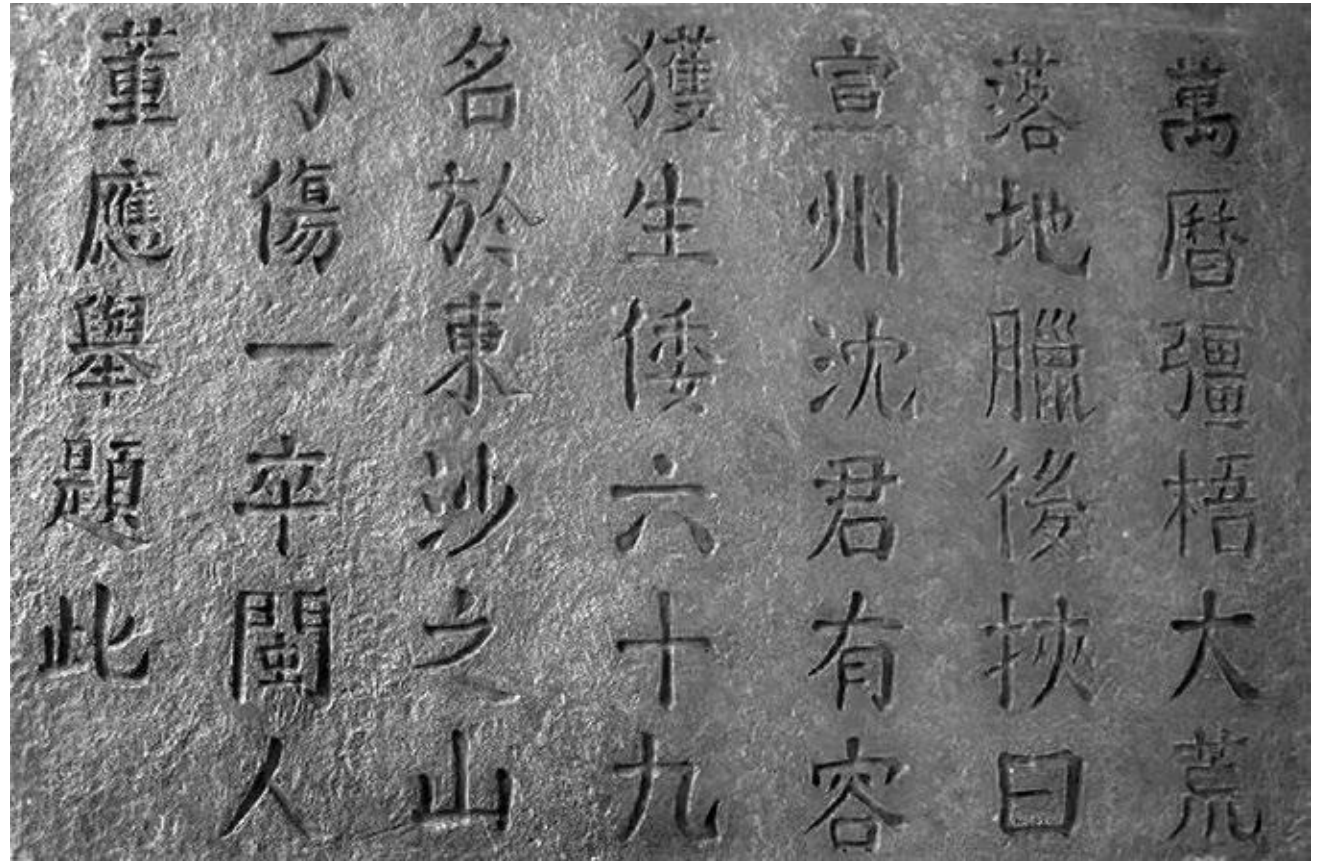 萬曆彊梧大荒
落地臘後挾曰
宣州沈君有容
獲生倭六十九
名於東沙之山
不傷一卒閩人
董應舉題此